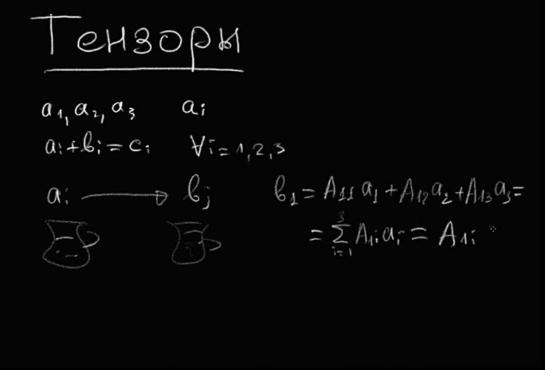 Тензоры
a₁, a₂, a₃ aᵢ
aᵢ + bᵢ = cᵢ ∀i = 1, 2, 3
aᵢ ⟶ bⱼ b₁ = A₁₁a₁ + A₁₂a₂ + A₁₃a₃ =
= ∑³ᵢ₌₁ A₁ᵢaᵢ = A₁ᵢ